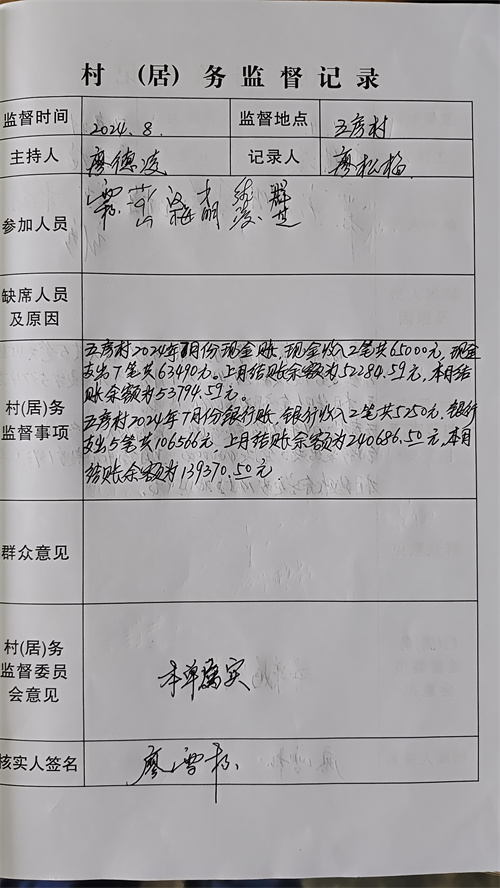 村 (居) 务 监 督 记 录
监督时间 2024.8. 监督地点 五房村
主持人 廖德凌 记录人 廖松梅
参加人员
缺席人员
及原因
五房村2024年7月份现金账,现金收入2笔共65000元,现金
支出7笔共63490元。上月结账余额为52284.59元,本月结
账余额为53794.59元。
村(居)务
监督事项
五房村2024年7月份银行账,银行收入2笔共5250元,银行
支出5笔共106566元,上月结账余额为240686.50元,本月
结账余额为139370.50元
群众意见
村(居)务
监督委员
会意见
本单属实
核实人签名 廖雪